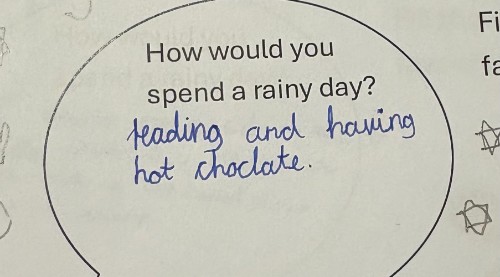 How would you
spend a rainy day?
reading and having
hot choclate.
Fi
fa